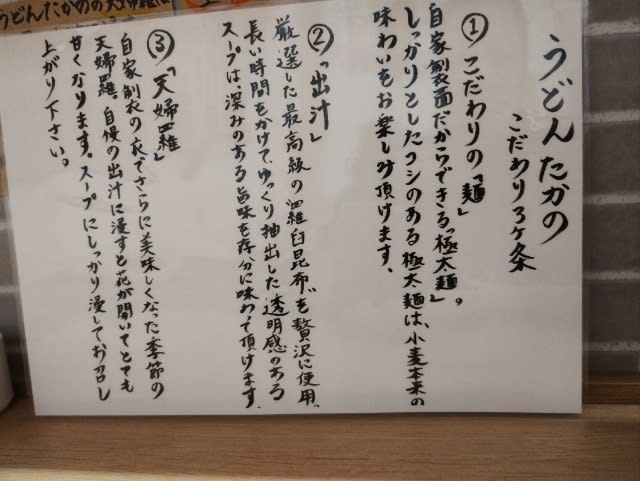 うどんたかの
こだわり3ケ条
①こだわりの「麺」
自家製麺だからできる「極太麺」。
しっかりとしたコシのある極太麺は、小麦本来の
味わいをお楽しみ頂けます。
②「出汁」
厳選した最高級の"羅臼昆布"を贅沢に使用。
長い時間をかけて、ゆっくり抽出した透明感のある
スープは、深みのある旨味を存分に味わって頂けます。
③「天婦羅」
自家製衣の衣でさらに美味しくなった季節の
天婦羅。自慢の出汁に浸すと花が開いてとても
甘くなります。スープにしっかり浸してお召し
上がり下さい。
うどんたかのの天婦羅は